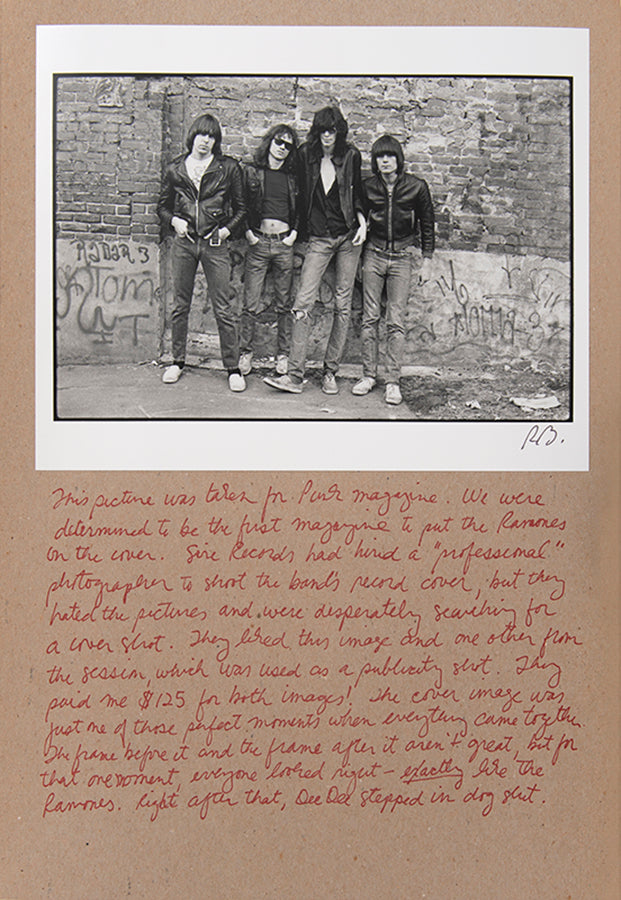 RADAR 3
Tom
RB.
This picture was taken for Punk magazine. We were
determined to be the first magazine to put the Ramones
on the cover. Sire Records had hired a "professional"
photographer to shoot the band's record cover, but they
hated the pictures and were desperately searching for
a cover shot. They liked this image and one other from
the session, which was used as a publicity shot. They
paid me $125 for both images! The cover image was
just one of those perfect moments when everything came together.
The frame before it and the frame after it aren't great, but for
that one moment, everyone looked right - exactly like the
Ramones. Right after that, Dee Dee stepped in dog shit.